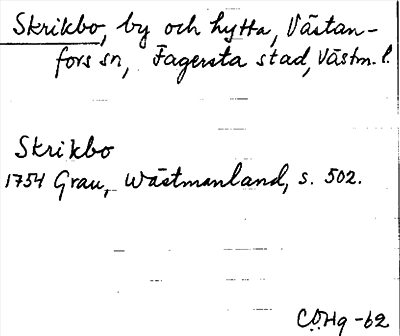 Skrikbo, by och hytta, Västan-
fors sn, Fagersta stad, Västm. l.
Skrikbo
1754 Grau, Wästmanland, s. 502.
C.Ö.Hg -62